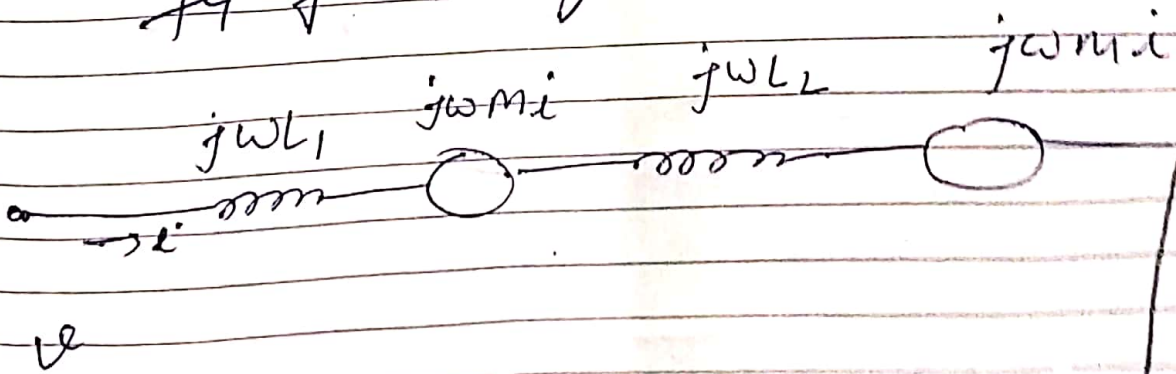 jωL₁ jωMi jωL₂ jωMi
→i
v